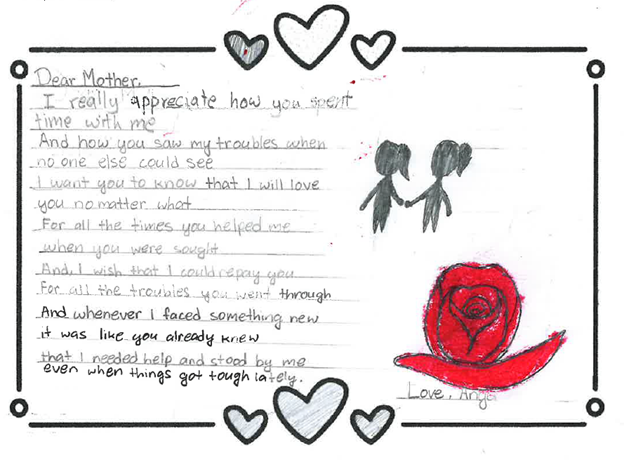 Dear Mother,
I really appreciate how you spent
time with me
And how you saw my troubles when
no one else could see
I want you to know that I will love
you no matter what
For all the times you helped me
when you were sought
And, I wish that I could repay you
For all the troubles you went through
And whenever I faced something new
it was like you already knew
that I needed help and stood by me
even when things got tough lately.
Love,